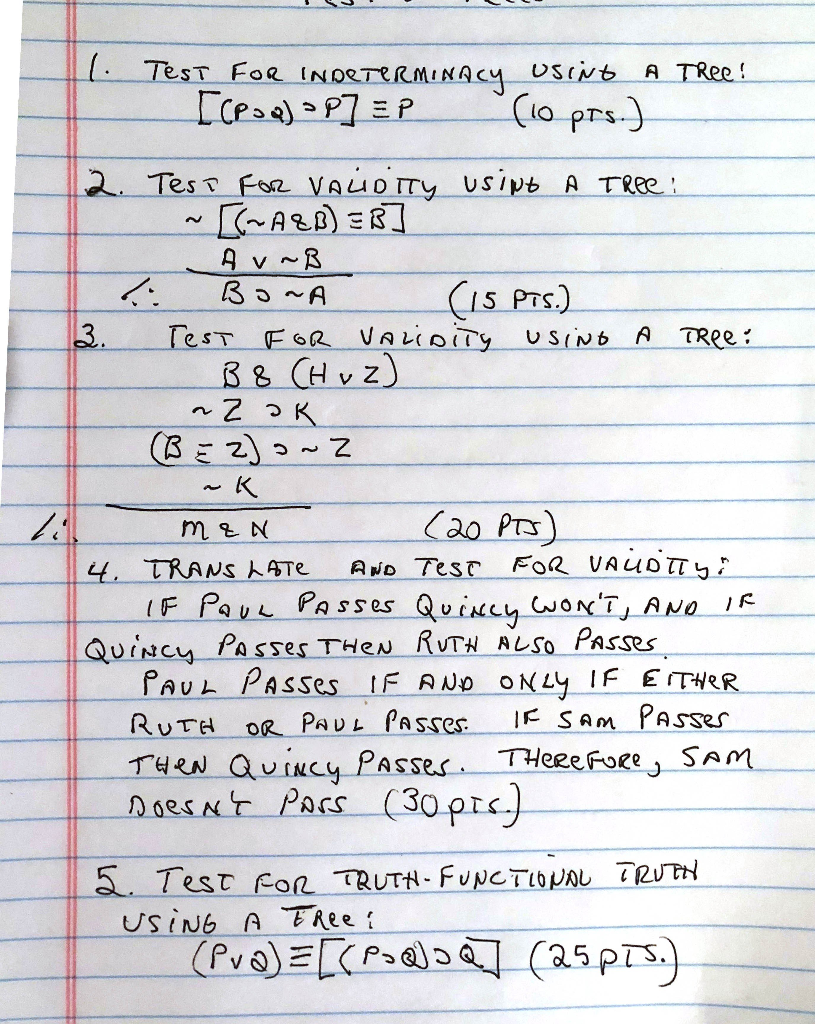 1. TEST FOR INDETERMINACY USING A TREE:
[(P⊃Q)⊃P] ≡ P (10 PTS.)
2. TEST FOR VALIDITY USING A TREE:
~[(~A&B) ≡ B]
A v ~B
∴ B ⊃ ~A (15 PTS.)
3. TEST FOR VALIDITY USING A TREE:
B & (H v Z)
~Z ⊃ K
(B ≡ Z) ⊃ ~Z
~K
∴ M & N (20 PTS)
4. TRANSLATE AND TEST FOR VALIDITY:
IF PAUL PASSES QUINCY WON'T, AND IF
QUINCY PASSES THEN RUTH ALSO PASSES
PAUL PASSES IF AND ONLY IF EITHER
RUTH OR PAUL PASSES. IF SAM PASSES
THEN QUINCY PASSES. THEREFORE, SAM
DOESN'T PASS (30 PTS.)
5. TEST FOR TRUTH-FUNCTIONAL TRUTH
USING A TREE:
(PvQ) ≡ [(P⊃Q)⊃Q] (25 PTS.)